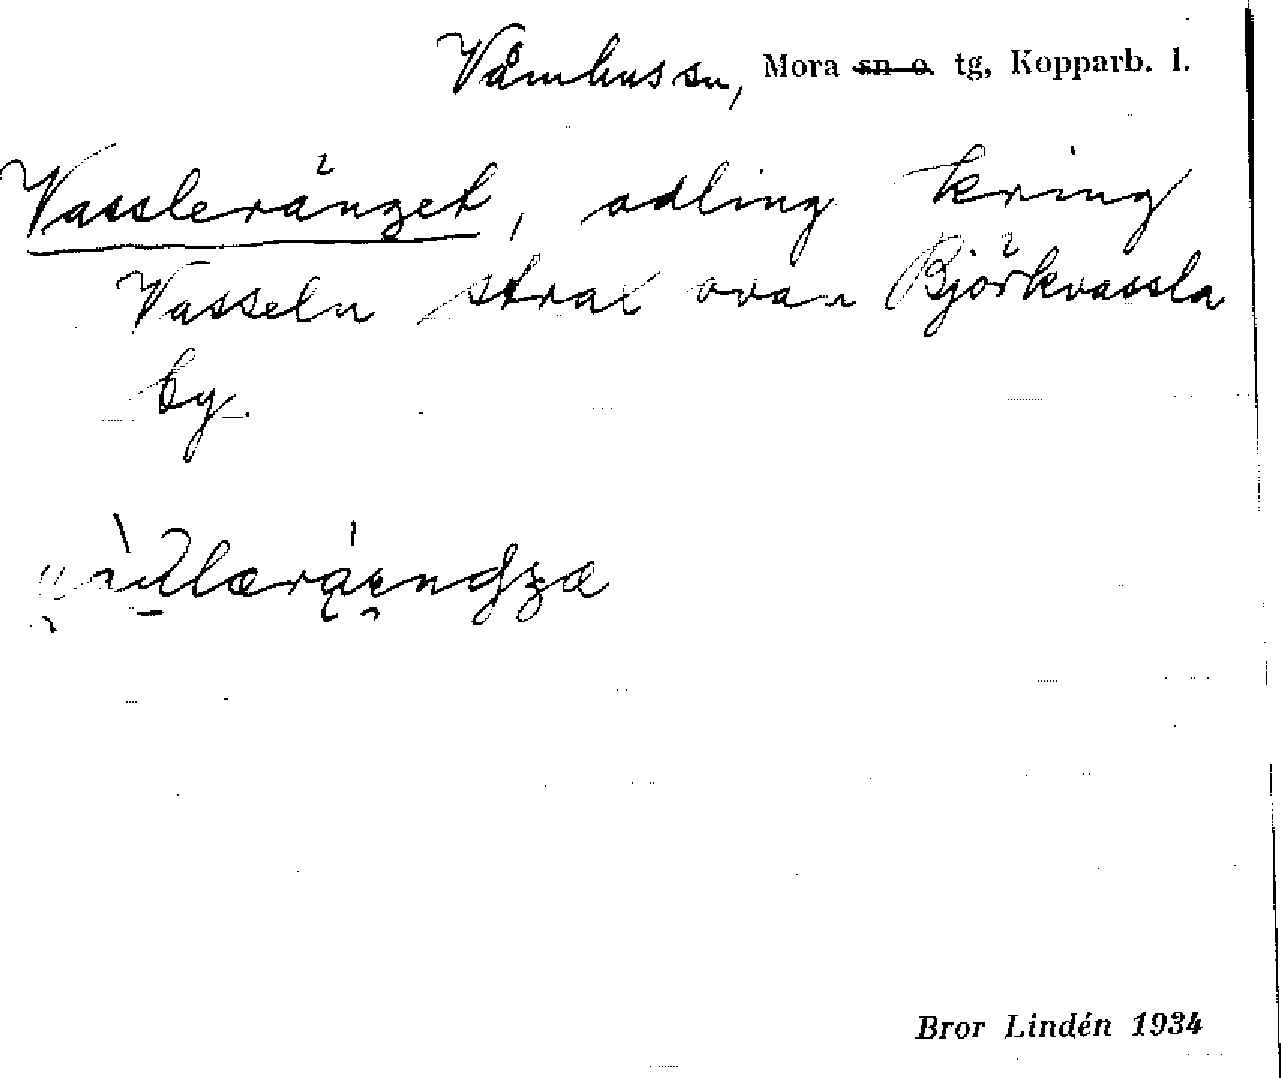 Våmhus sn, Mora sn o. tg, Kopparb. l.
Vassleränget, odling kring
Vasseln strax ovan Björkvassla
by.
Bror Lindén 1934